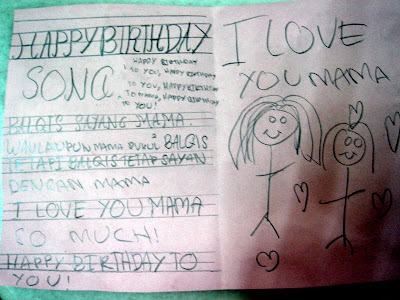 HAPPY BIRTHDAY
SONG
HAPPY BIRTHDAY
TO YOU, HAPPY BIRTHDAY
TO YOU, HAPPY BIRTHDAY
TO MAMA, HAPPY BIRTHDAY
TO YOU!
BALQIS SAYANG MAMA
WALAUPUN MAMA PUKUL BALQIS
TETAPI BALQIS TETAP SAYAN
DENGAN MAMA
I LOVE YOU MAMA
SO MUCH!
HAPPY BIRTHDAY TO
YOU!
I LOVE
YOU MAMA